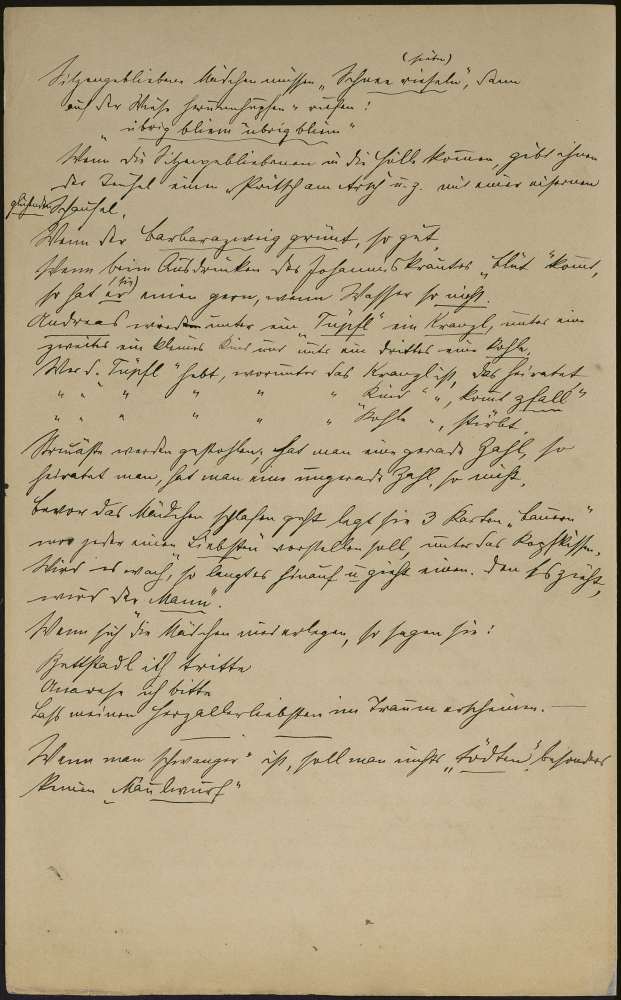 (sieben)
Sitzengebliebene Mädchen müssen „Schnee rieseln", dann
auf der Wiese herumhupfen u. rufen:
„übrig bliem übrig bliem"
Wenn die Sitzengebliebenen in die Hölle kommen, gibt ihnen
der Teufel einen Pritsch am Arsch u. z. mit einer eisernen
glühenden Schaufel.
Wenn der Barbarazweig grünt, so gut,
Wenn beim Ausdrücken des Johanneskrautes „Blut" kommt,
(sie)
so hat er einen gern, wenn Wasser so nicht.
Andreas werden unter ein „Tüpfl" ein Kranzl, unter ein
zweites ein kleines Kind und unter ein drittes eine Kohle.
Wer d. „Tüpfl" hebt, worunter das Kranzl ist, das heiratet
" " " " " " Kind " ", kommt zfall"
" " " " " " Kohle " ", stirbt.
werden gestohlen; hat man eine gerade Zahl, so
heiratet man, hat man eine ungerade Zahl, so nicht.
Bevor das Mädchen schlafen geht legt sie 3 Karten „Bauern"
wo jeder einen „Liebsten" vorstellen soll, unter das Kopfkissen.
Wird es wach, so langt es hinauf u. zieht einen. Den es zieht,
wird der „Mann".
Wenn sich die Mädchen niederlegen, so sagen sie:
Bettstadl ich tritte
Andreas ich bitte
Lass meinen Herzallerliebsten im Traum erscheinen. —
Wenn man „schwanger" ist, soll man nichts „tödten", besonders
keinen „Maulwurf"